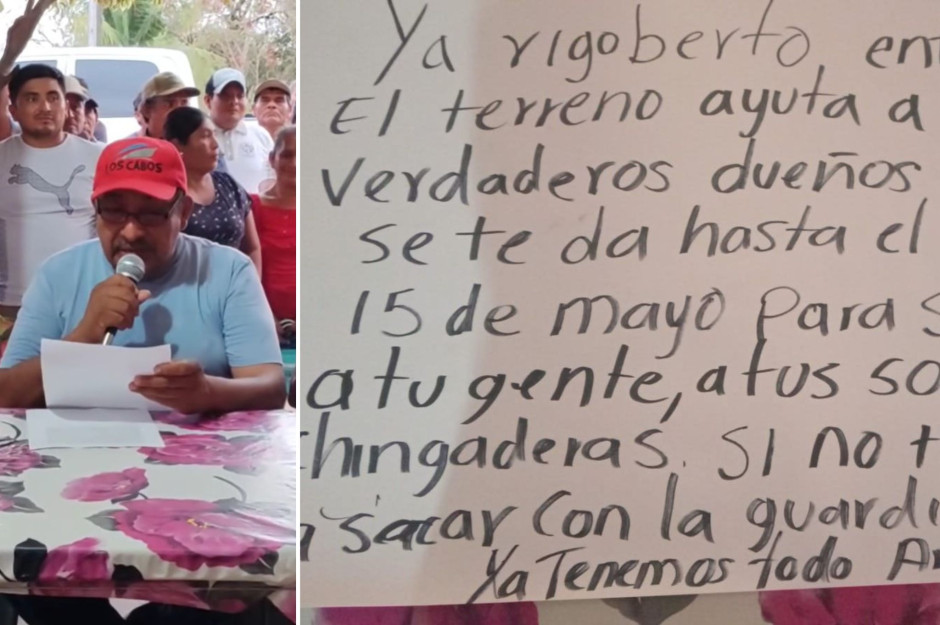 LOS CABOS
Ya rigoberto, en
El terreno ayuta a
verdaderos dueños
se te da hasta el
15 de mayo Para s
a tu gente, a tus so
chingaderas. SI no t
sacar con la guardi
Ya Tenemos todo Ar